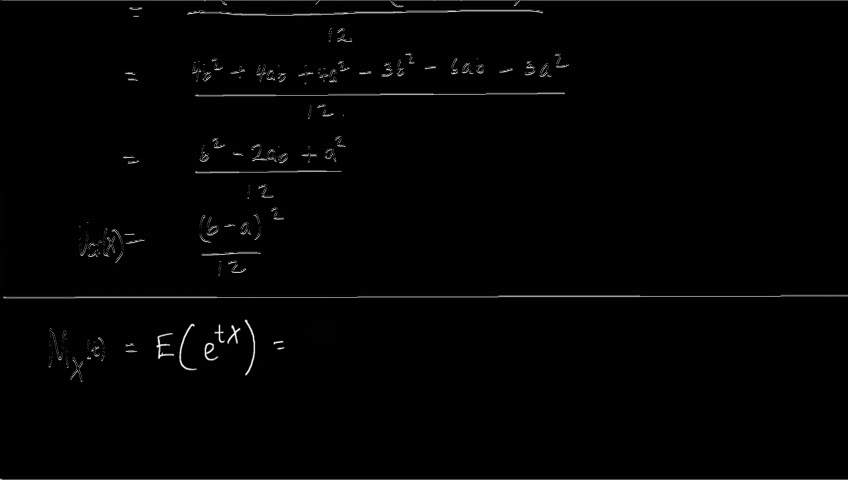 =
12
= 4b² + 4ab + 4a² - 3b² - 6ab - 3a²
12
= b² - 2ab + a²
12
Var(X) = (b-a)²
12
M_X(t) = E(e^{tX}) =